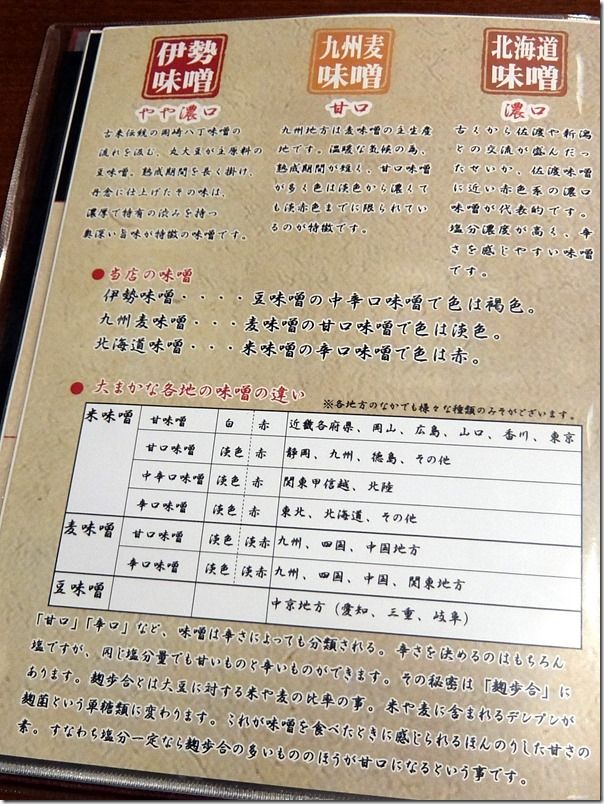 伊勢
味噌
やや濃口
古来伝統の岡崎八丁味噌の
流れを汲む、丸大豆が主原料の
豆味噌。熟成期間を長く掛け、
丹念に仕上げたその味は、
濃厚で特有の渋みを持つ
奥深い旨味が特徴の味噌です。
九州麦
味噌
甘口
九州地方は麦味噌の主生産
地です。温暖な気候の為、
熟成期間が短く、甘口味噌
が多く色は淡色から濃くて
も淡赤色までに限られてい
るのが特徴です。
北海道
味噌
濃口
古くから佐渡や新潟
との交流が盛んだっ
たせいか、佐渡味噌
に近い赤色系の濃口
味噌が代表的です。
塩分濃度が高く、辛
さを感じやすい味噌
です。
●当店の味噌
伊勢味噌・・・・豆味噌の中辛口味噌で色は褐色。
九州麦味噌・・・麦味噌の甘口味噌で色は淡色。
北海道味噌・・・米味噌の辛口味噌で色は赤。
● 大まかな各地の味噌の違い
※各地方のなかでも様々な種類のみそがございます。
米味噌 甘味噌 白 赤 近畿各府県、岡山、広島、山口、香川、東京
甘口味噌 淡色 赤 静岡、九州、徳島、その他
中辛口味噌 淡色 赤 関東甲信越、北陸
辛口味噌 淡色 赤 東北、北海道、その他
麦味噌 甘口味噌 淡色 淡赤 九州、四国、中国地方
辛口味噌 淡色 淡赤 九州、四国、中国、関東地方
豆味噌 中京地方（愛知、三重、岐阜）
「甘口」「辛口」など、味噌は辛さによっても分類される。辛さを決めるのはもちろん
塩ですが、同じ塩分量でも甘いものと辛いものができます。その秘密は「麹歩合」に
あります。麹歩合とは大豆に対する米や麦の比率の事。米や麦に含まれるデンプンが
麹菌という単糖類に変わります。これが味噌を食べたときに感じられるほんのりした甘さの
素。すなわち塩分一定なら麹歩合の多いもののほうが甘口になるという事です。